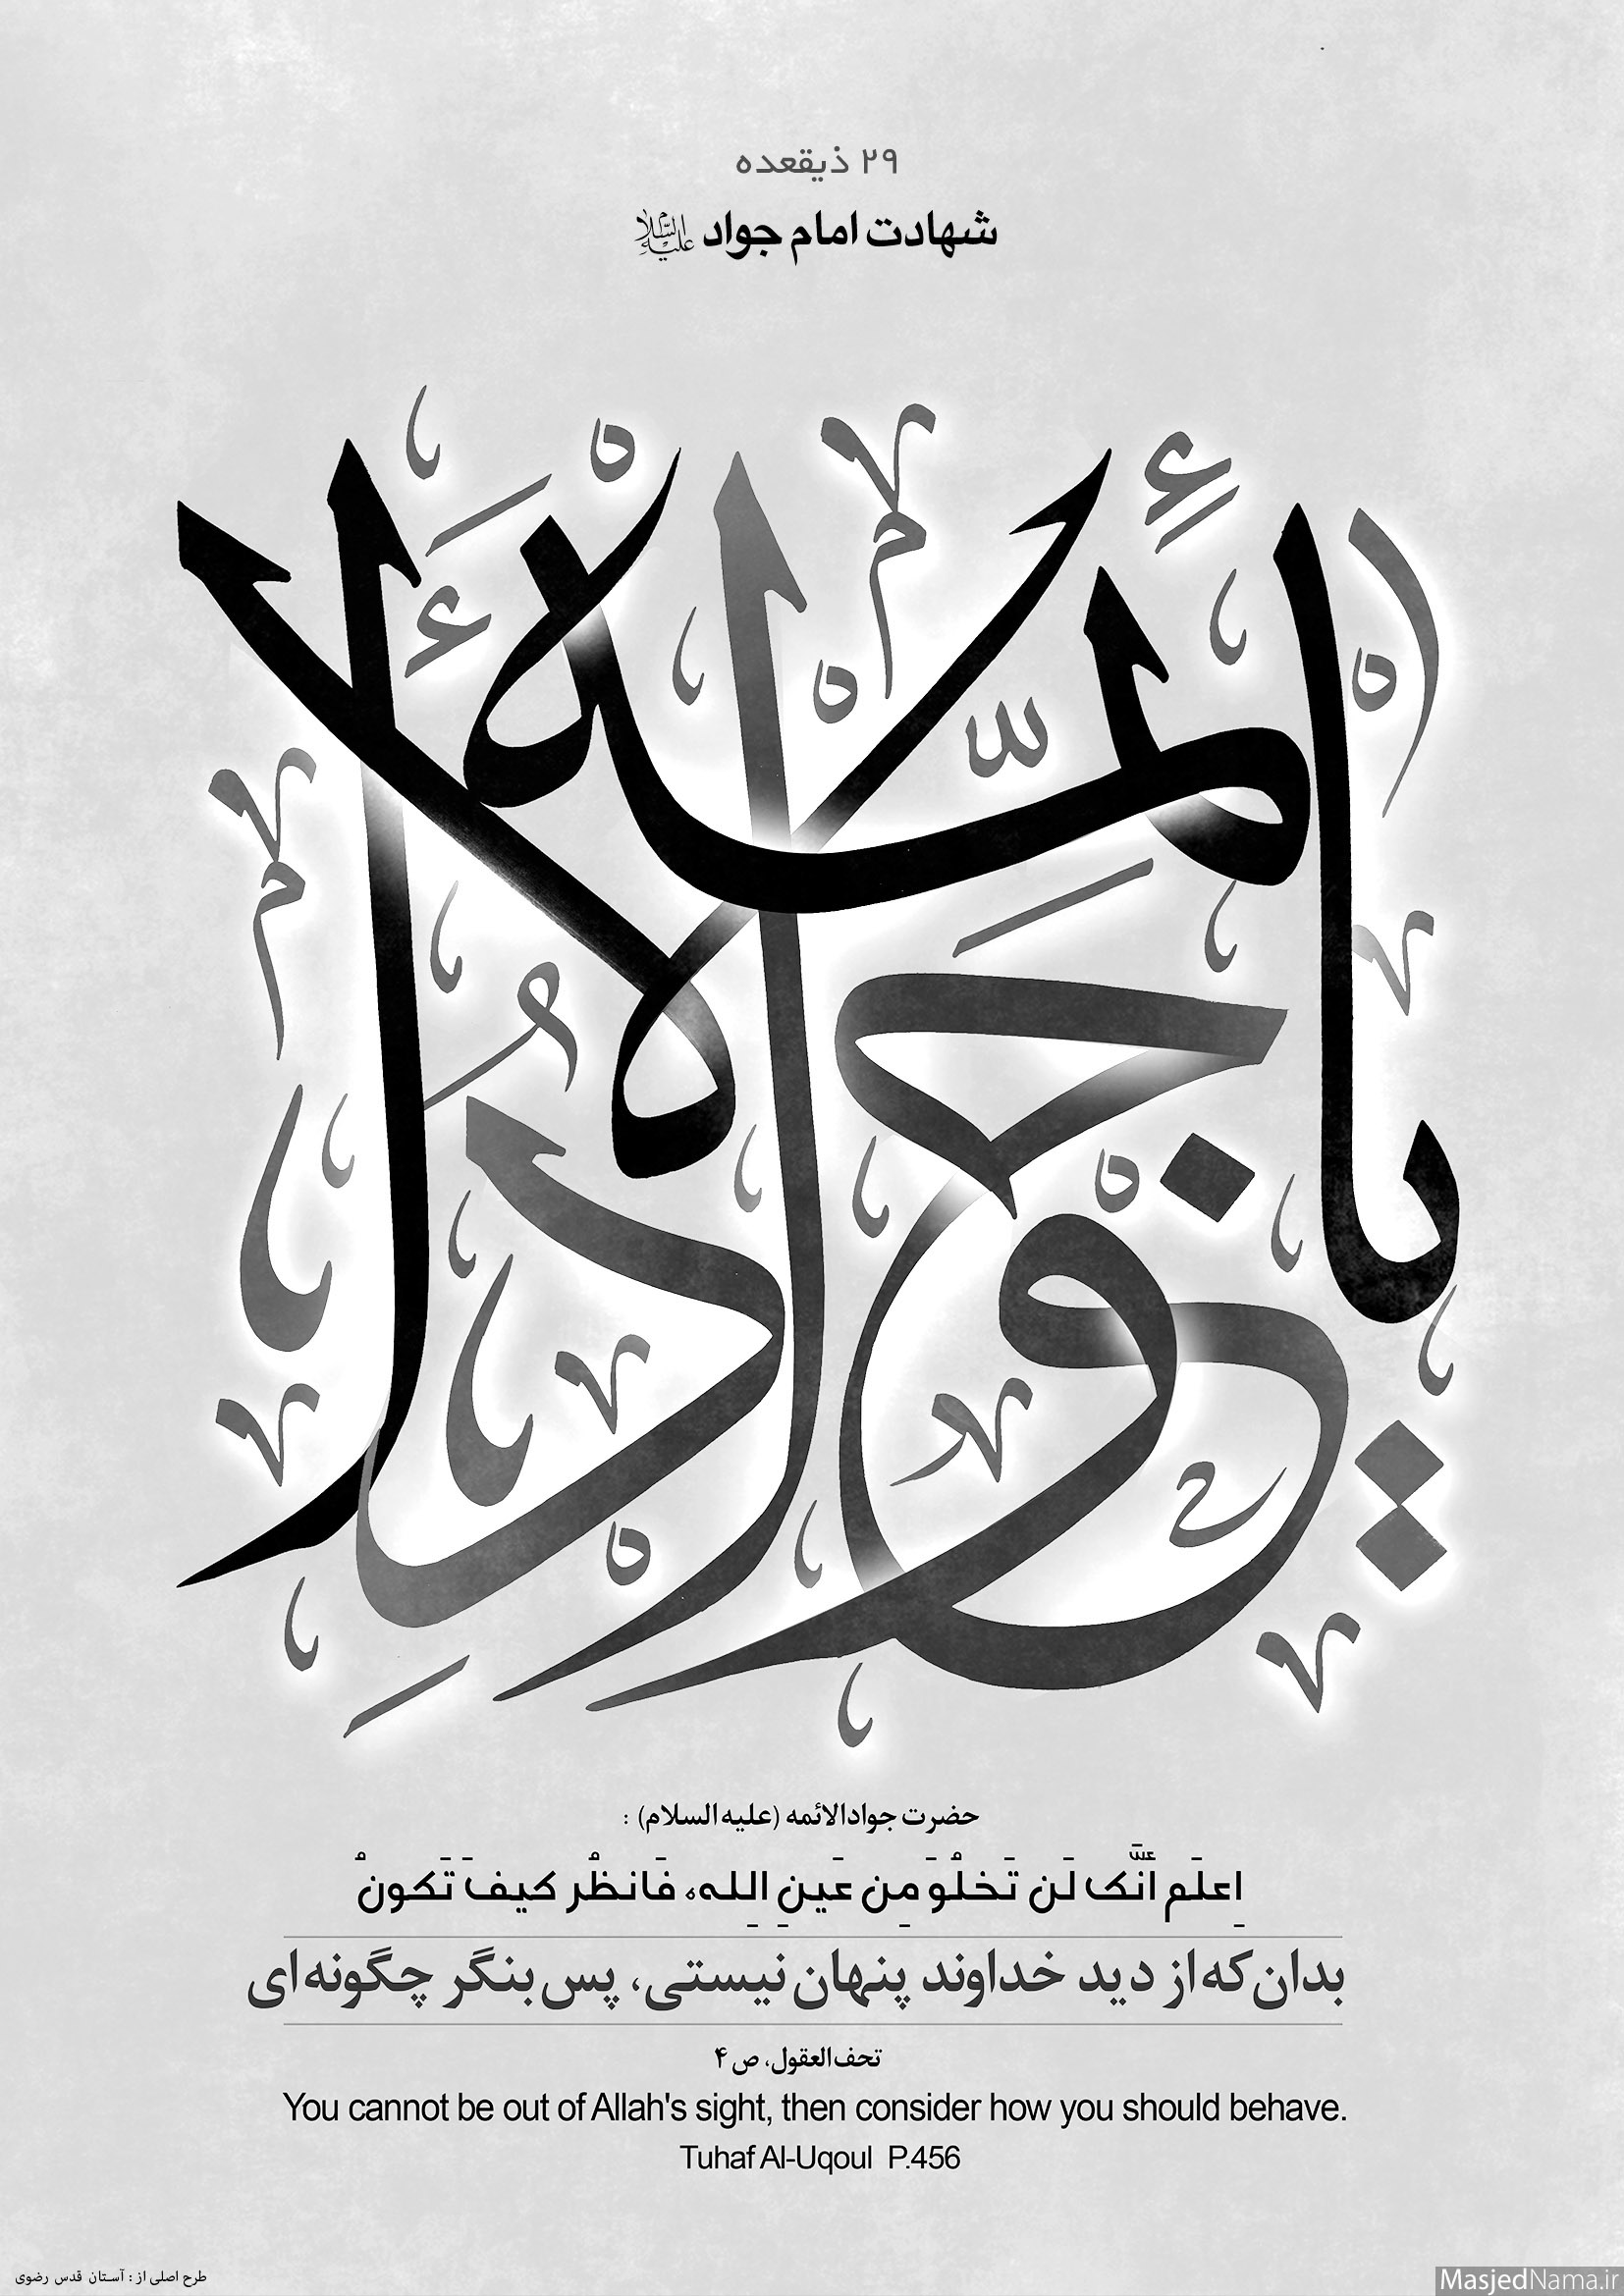 ۲۹ ذیقعده
شهادت امام جواد علیه السلام
یا جواد الأئمة
حضرت جوادالائمه (علیه السلام) :
اِعلَم أنَّک لَن تَخلُوَ مِن عَینِ اللهِ، فَانظُر کیفَ تَکونُ
بدان که از دید خداوند پنهان نیستی، پس بنگر چگونه‌ای
تحف العقول، ص ۴
You cannot be out of Allah's sight, then consider how you should behave.
Tuhaf Al-Uqoul P.456
طرح اصلی از : آستان قدس رضوی
MasjedNama.ir